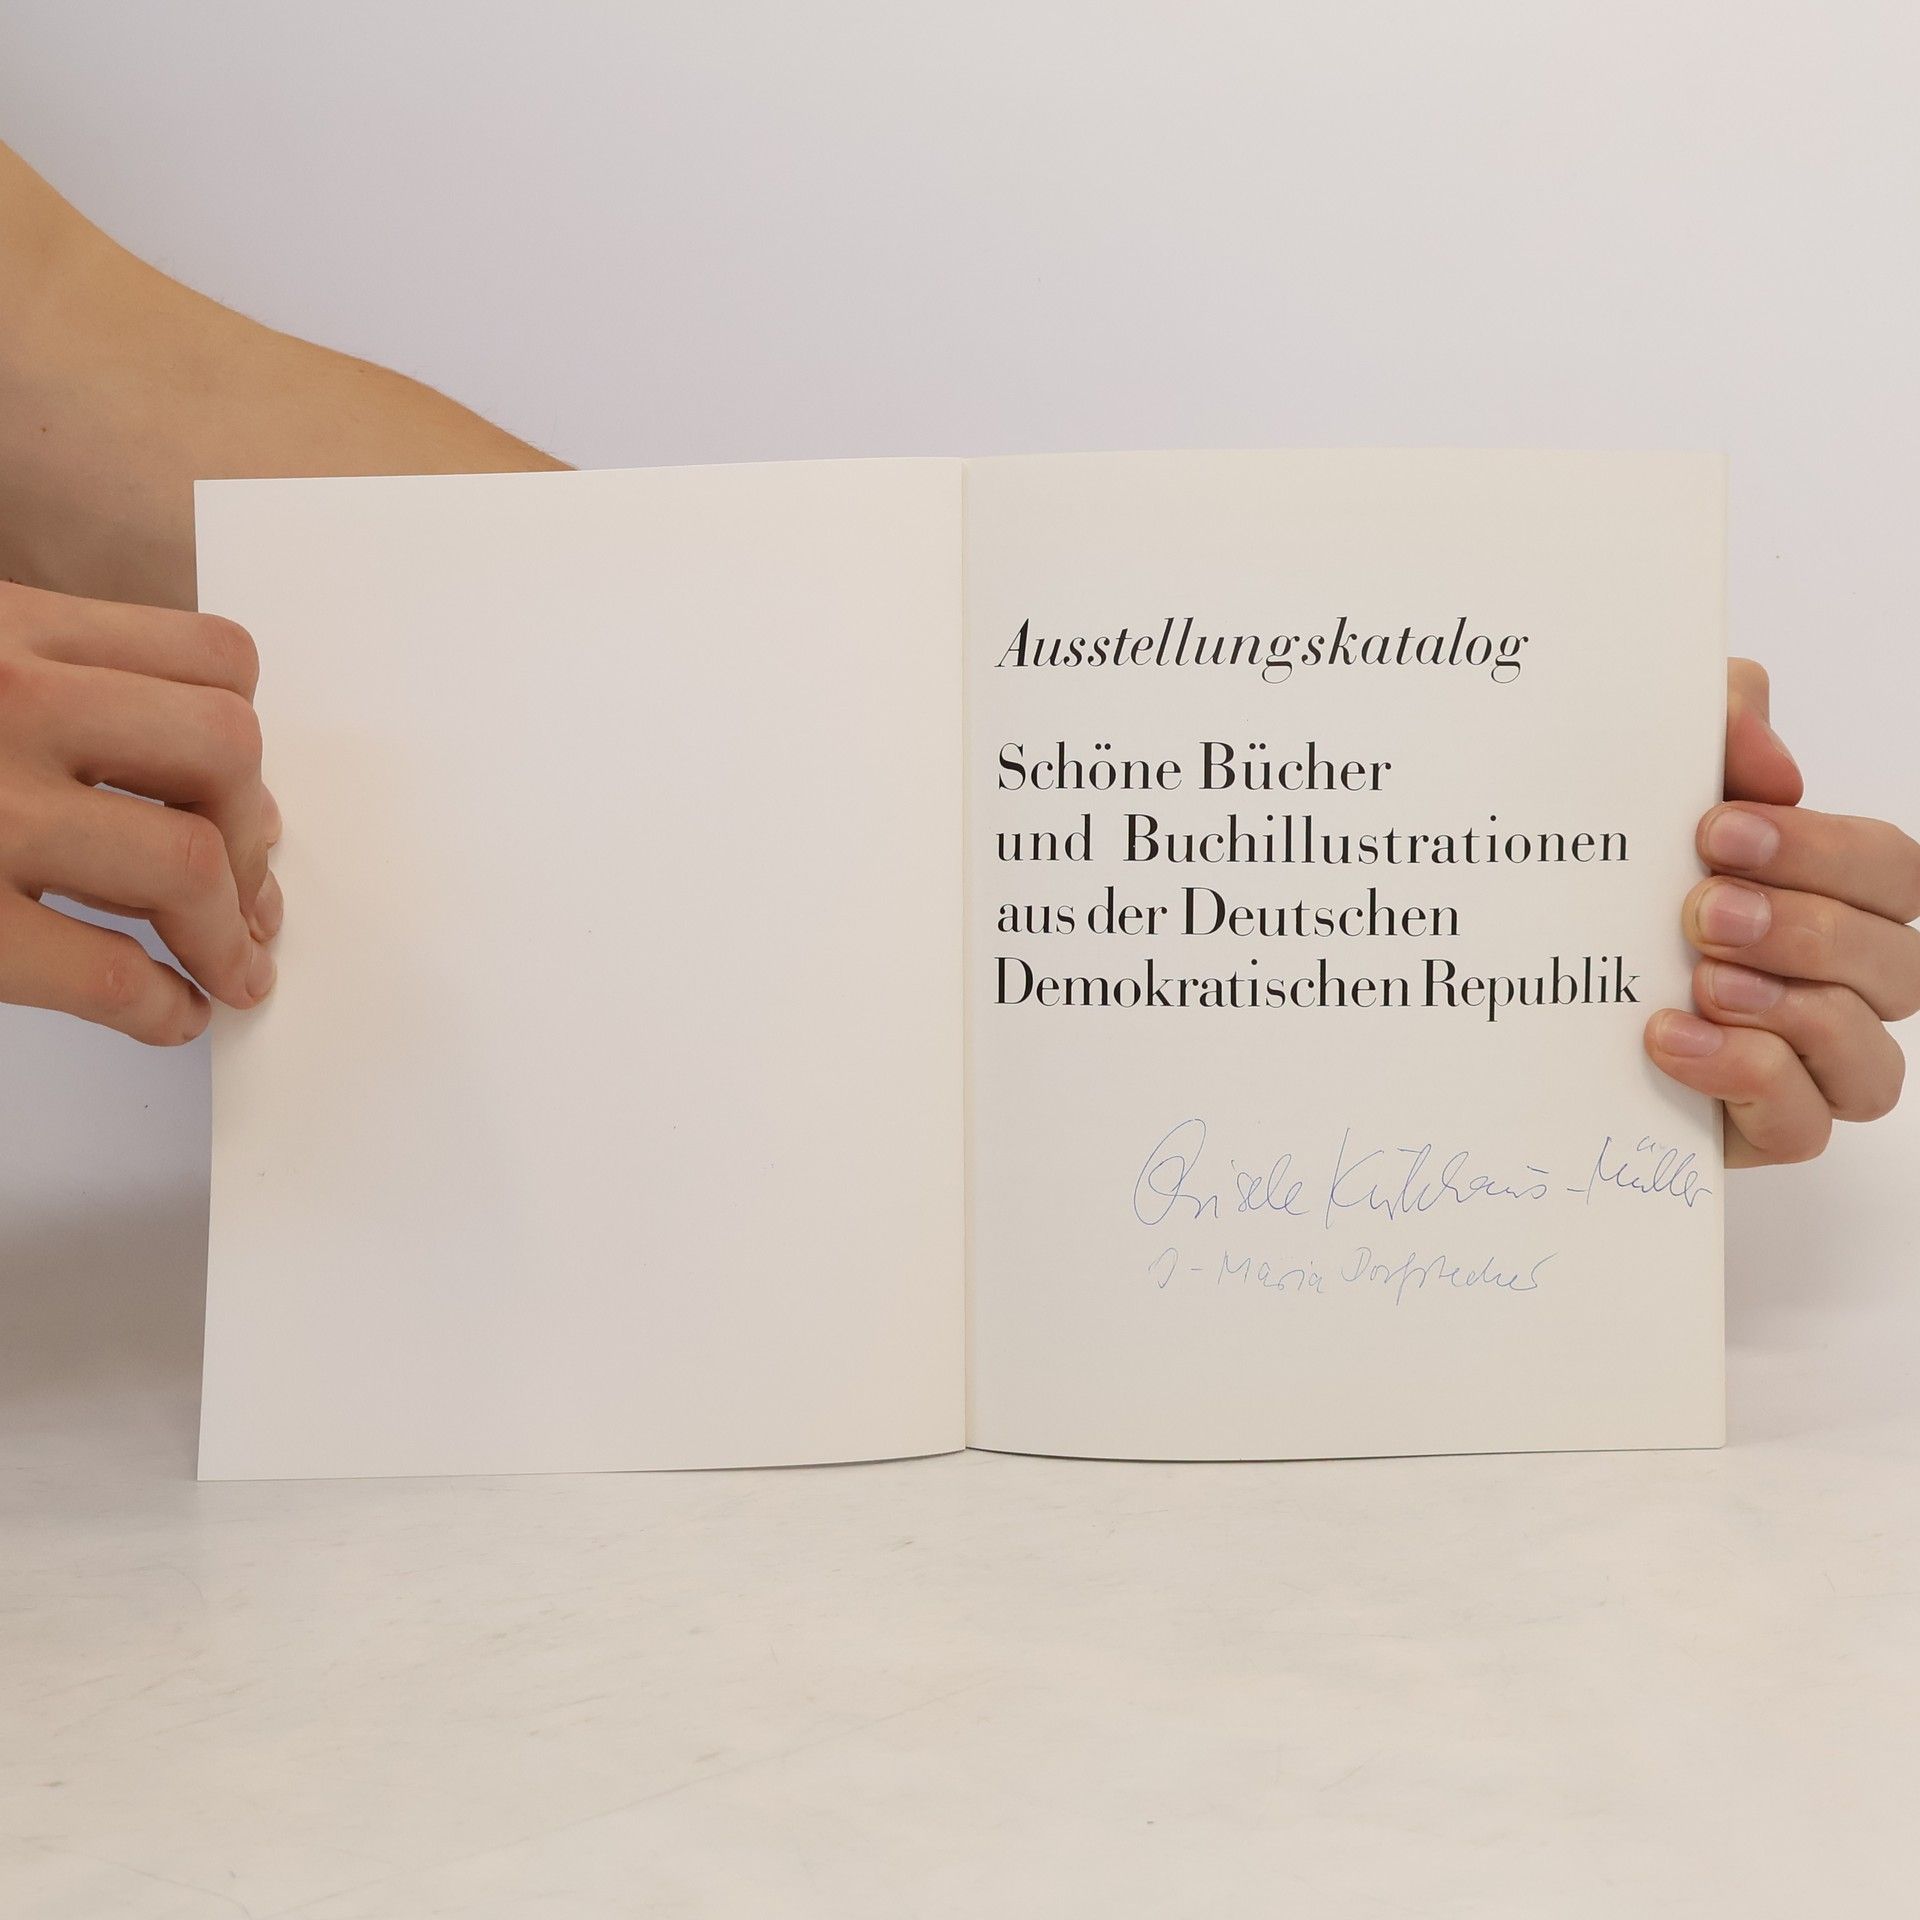 Ausstellungskatalog
Schöne Bücher
und Buchillustrationen
aus der Deutschen
Demokratischen Republik
Gisele -Müller
Maria